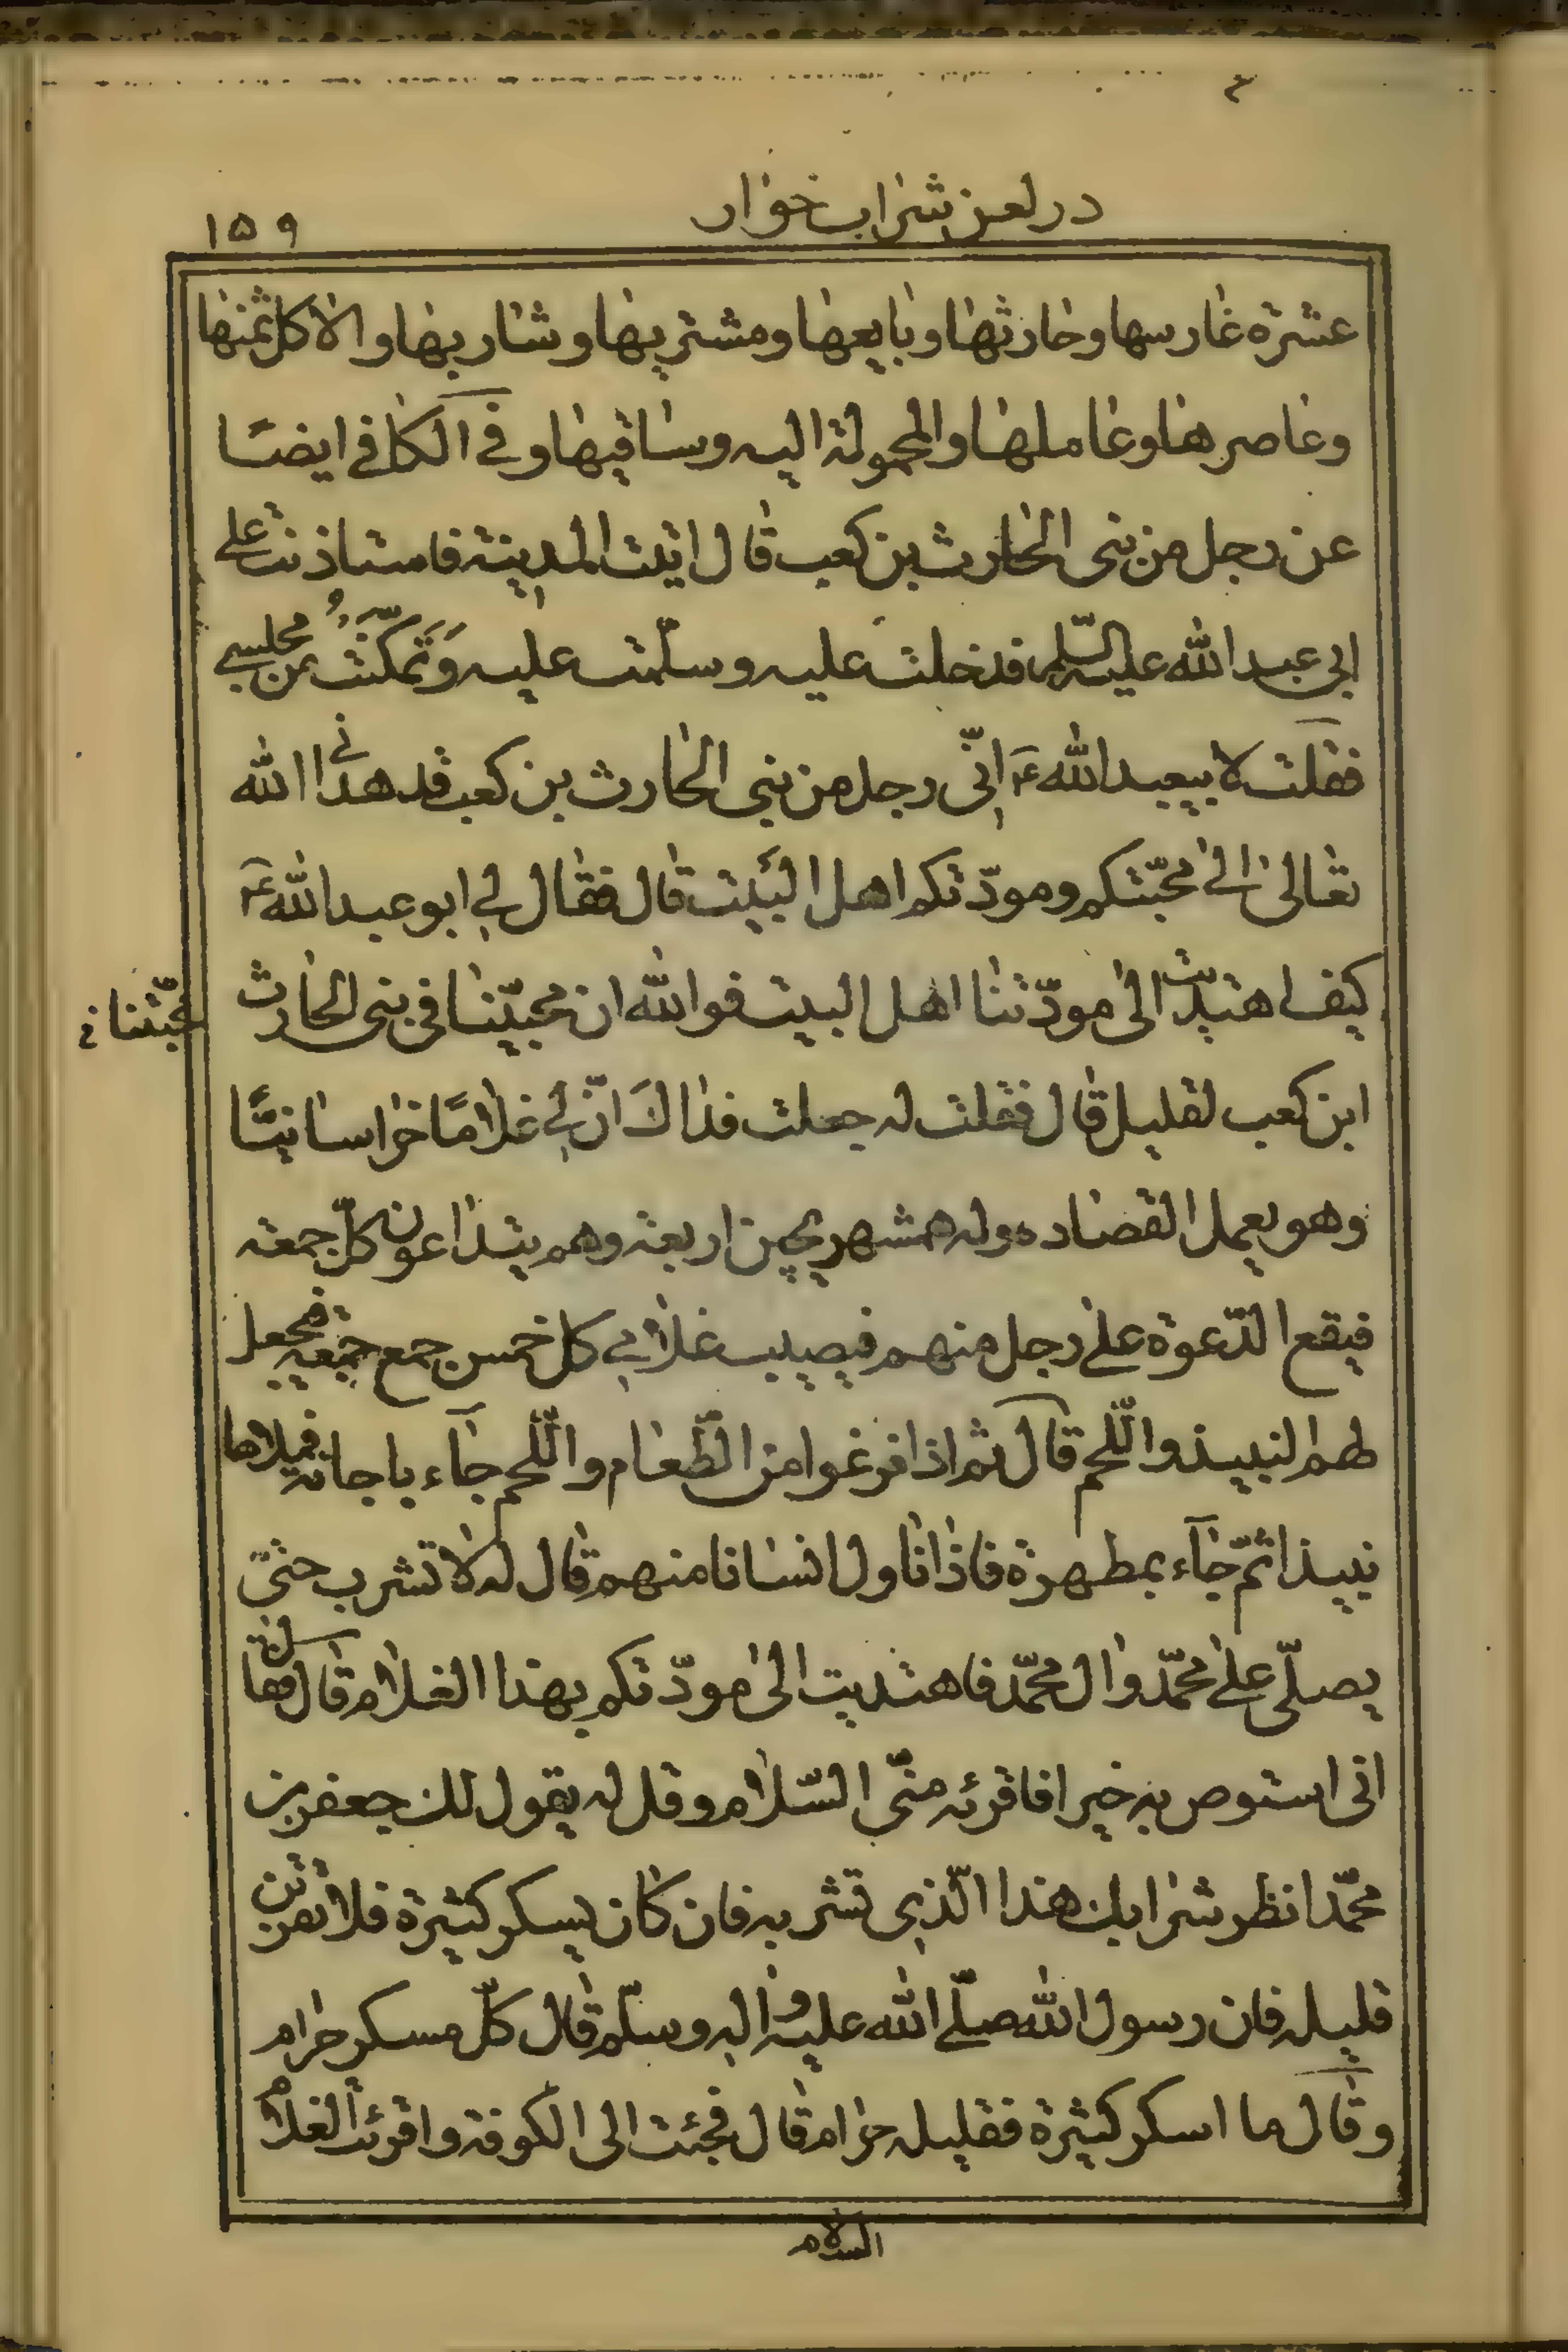 در لعن شراب خوار
۱۵۹
عشرة غارسها وحارثها وبايعها ومشتريها وشاربها والاكل ثمنها
وعاصرها وعاملها والمحمولة اليه وساقيها وفي الكافي ايضًا
عن رجل من بني الحارث بن كعب قال اتيت المدينة فاستاذنت على
ابي عبد الله عليه السّلم فدخلت عليه وسلّمت عليه وَتَمَكَّنْتُ من مجلسي
فقلت لابيعبد الله ع انّي رجل من بني الحارث بن كعب قد هداني الله
تعالى الى محبّتكم ومودّتكم اهل البَيت قال فقال لي ابو عبد الله ع
كيف اهتديت الى مودّتنا اهل البيت فوالله ان محبّينا في بني الحارث
محبّتنا خ
ابن كعب لقليل قال فقلت له جعلت فداك انّ لي غلامًا خراسانيًّا
وهو يعمل القصاره وله همشهريجين اربعة وهم يتداعون كلّ جمعة
فيقع الدّعوة على رجل منهم فيصيب غلامي كل خمس جمع جمعة فيجعل
لهم النبيذ واللّحم قال ثم اذا فرغوا من الطّعام واللّحم جآء باجانة فيملاها
نبيذا ثمّ جآء بمطهرة فاذا ناول انسانا منهم قال له لا تشرب حتّى
يصلّي على محمّد وال محمّد فاهتديت الى مودّتكم بهذا الغلام قال فقال
انى استوص به خيرا فاقرئه منّي السّلام وقل له يقول لك جعفر بن
محمّد انظر شرابك هذا الّذي تشربه فان كان يسكر كثيرة فلا تقربن
قليله فان رسول الله صلّى الله عليه واله وسلّم قال كلّ مسكر حرام
وقال ما اسكر كثيرة فقليله حرام قال فجئت الى الكوفة واقرئت الغلام
السلام